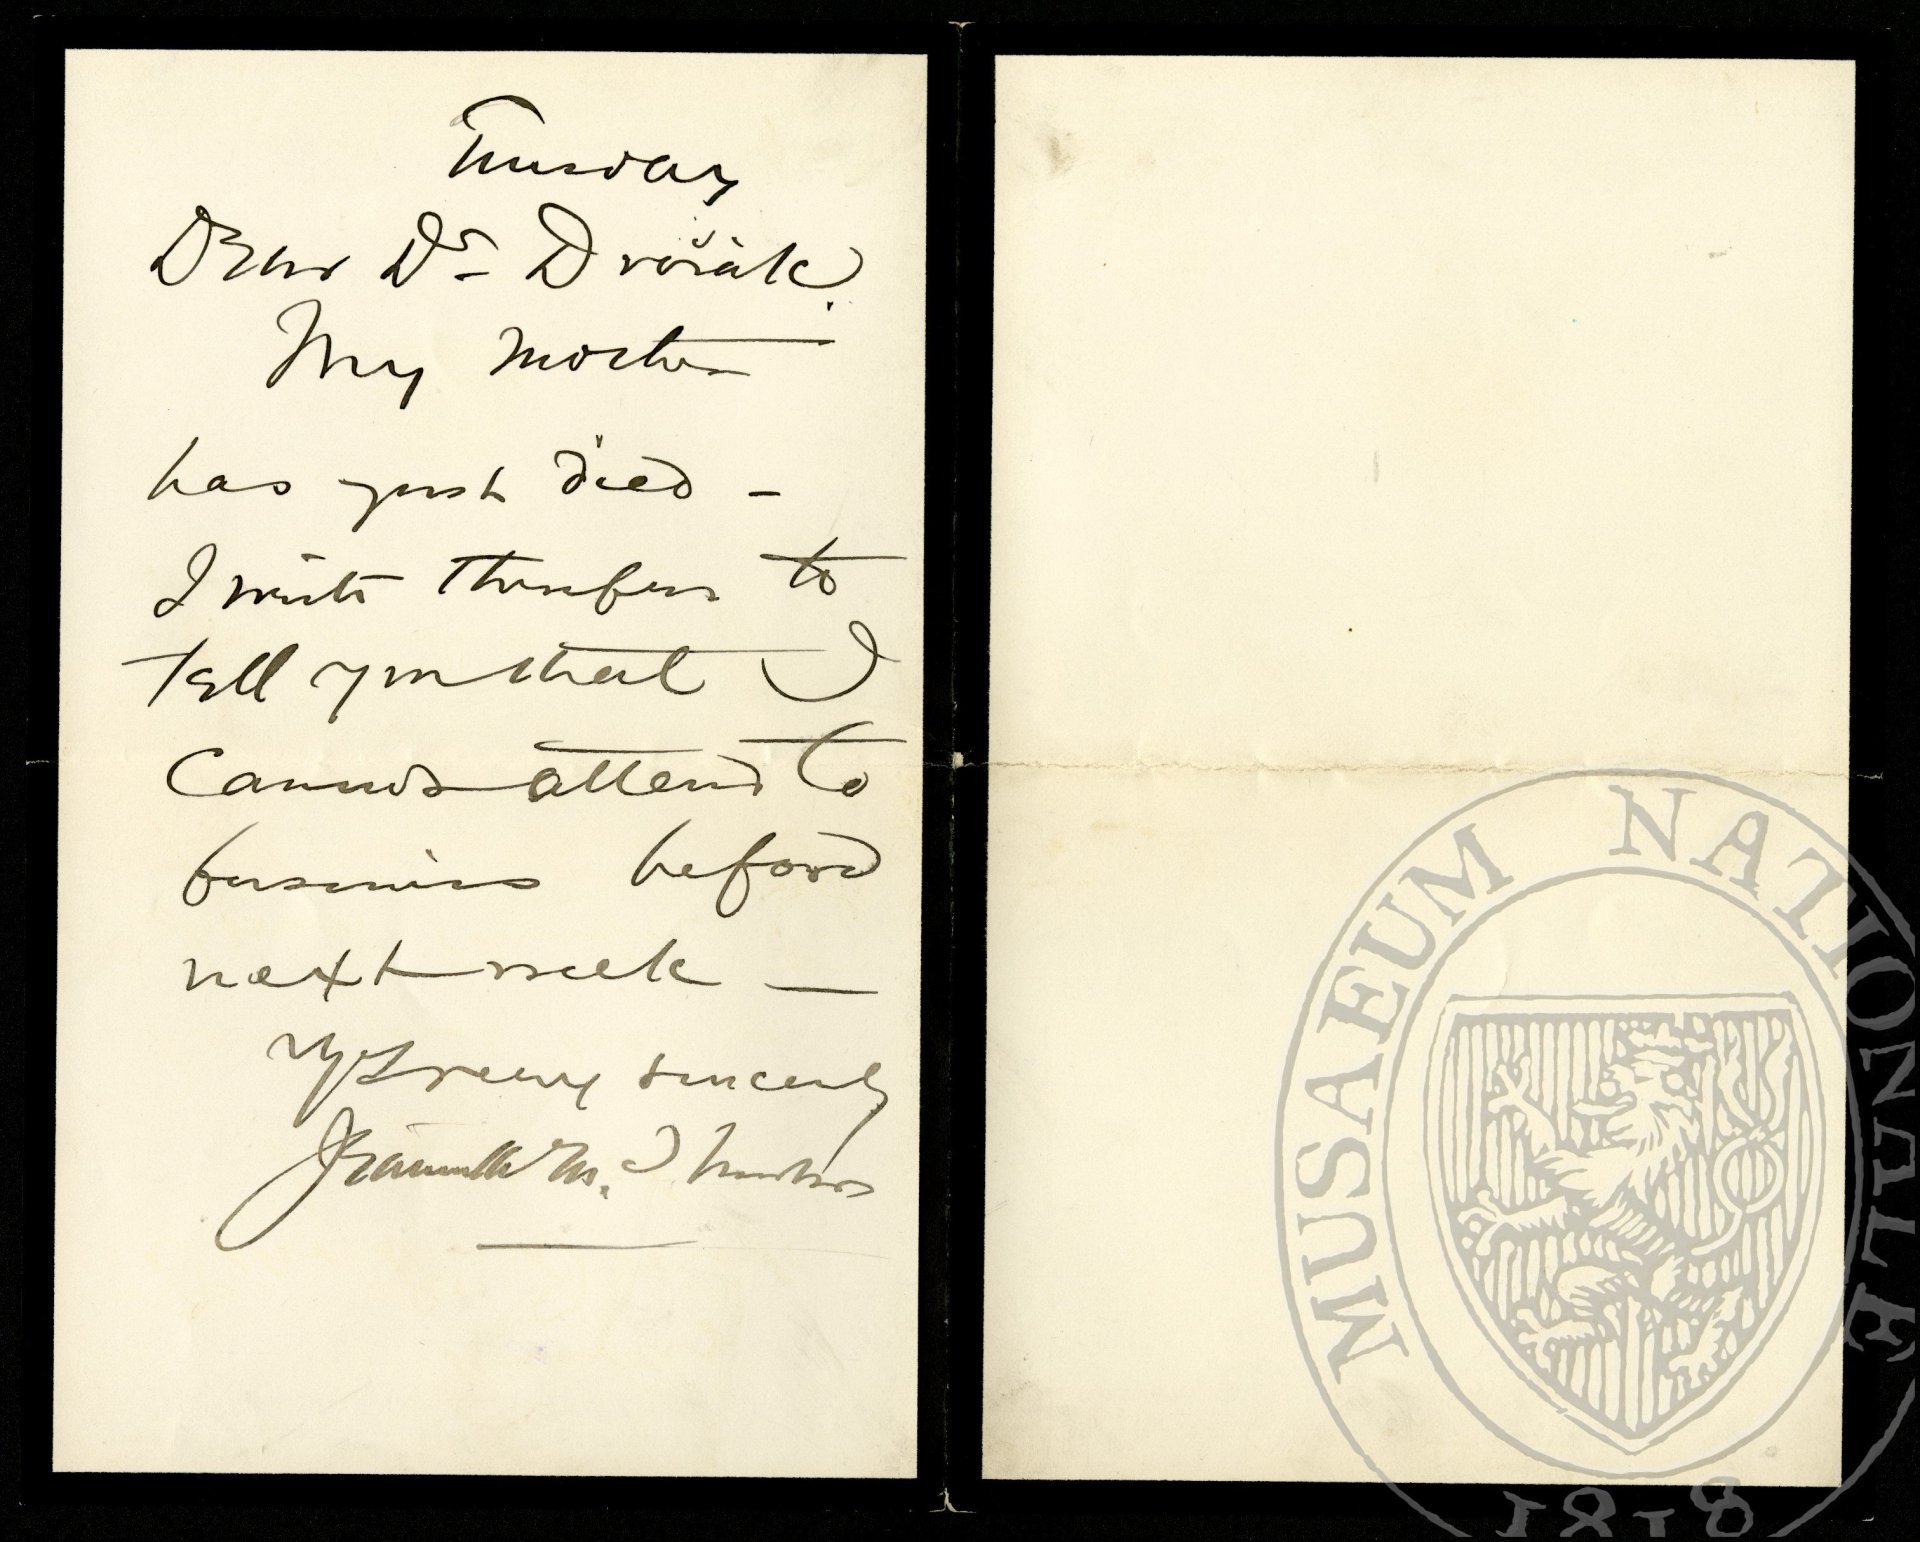 Tuesday
Dear Dr Dvořák
My mother
has just died -
I write therefore to
tell you that I
cannot attend to
business before
next week —
Yrs very sincerely
Jeannette M. Thurber
MUSAEUM NATIONALE
1818